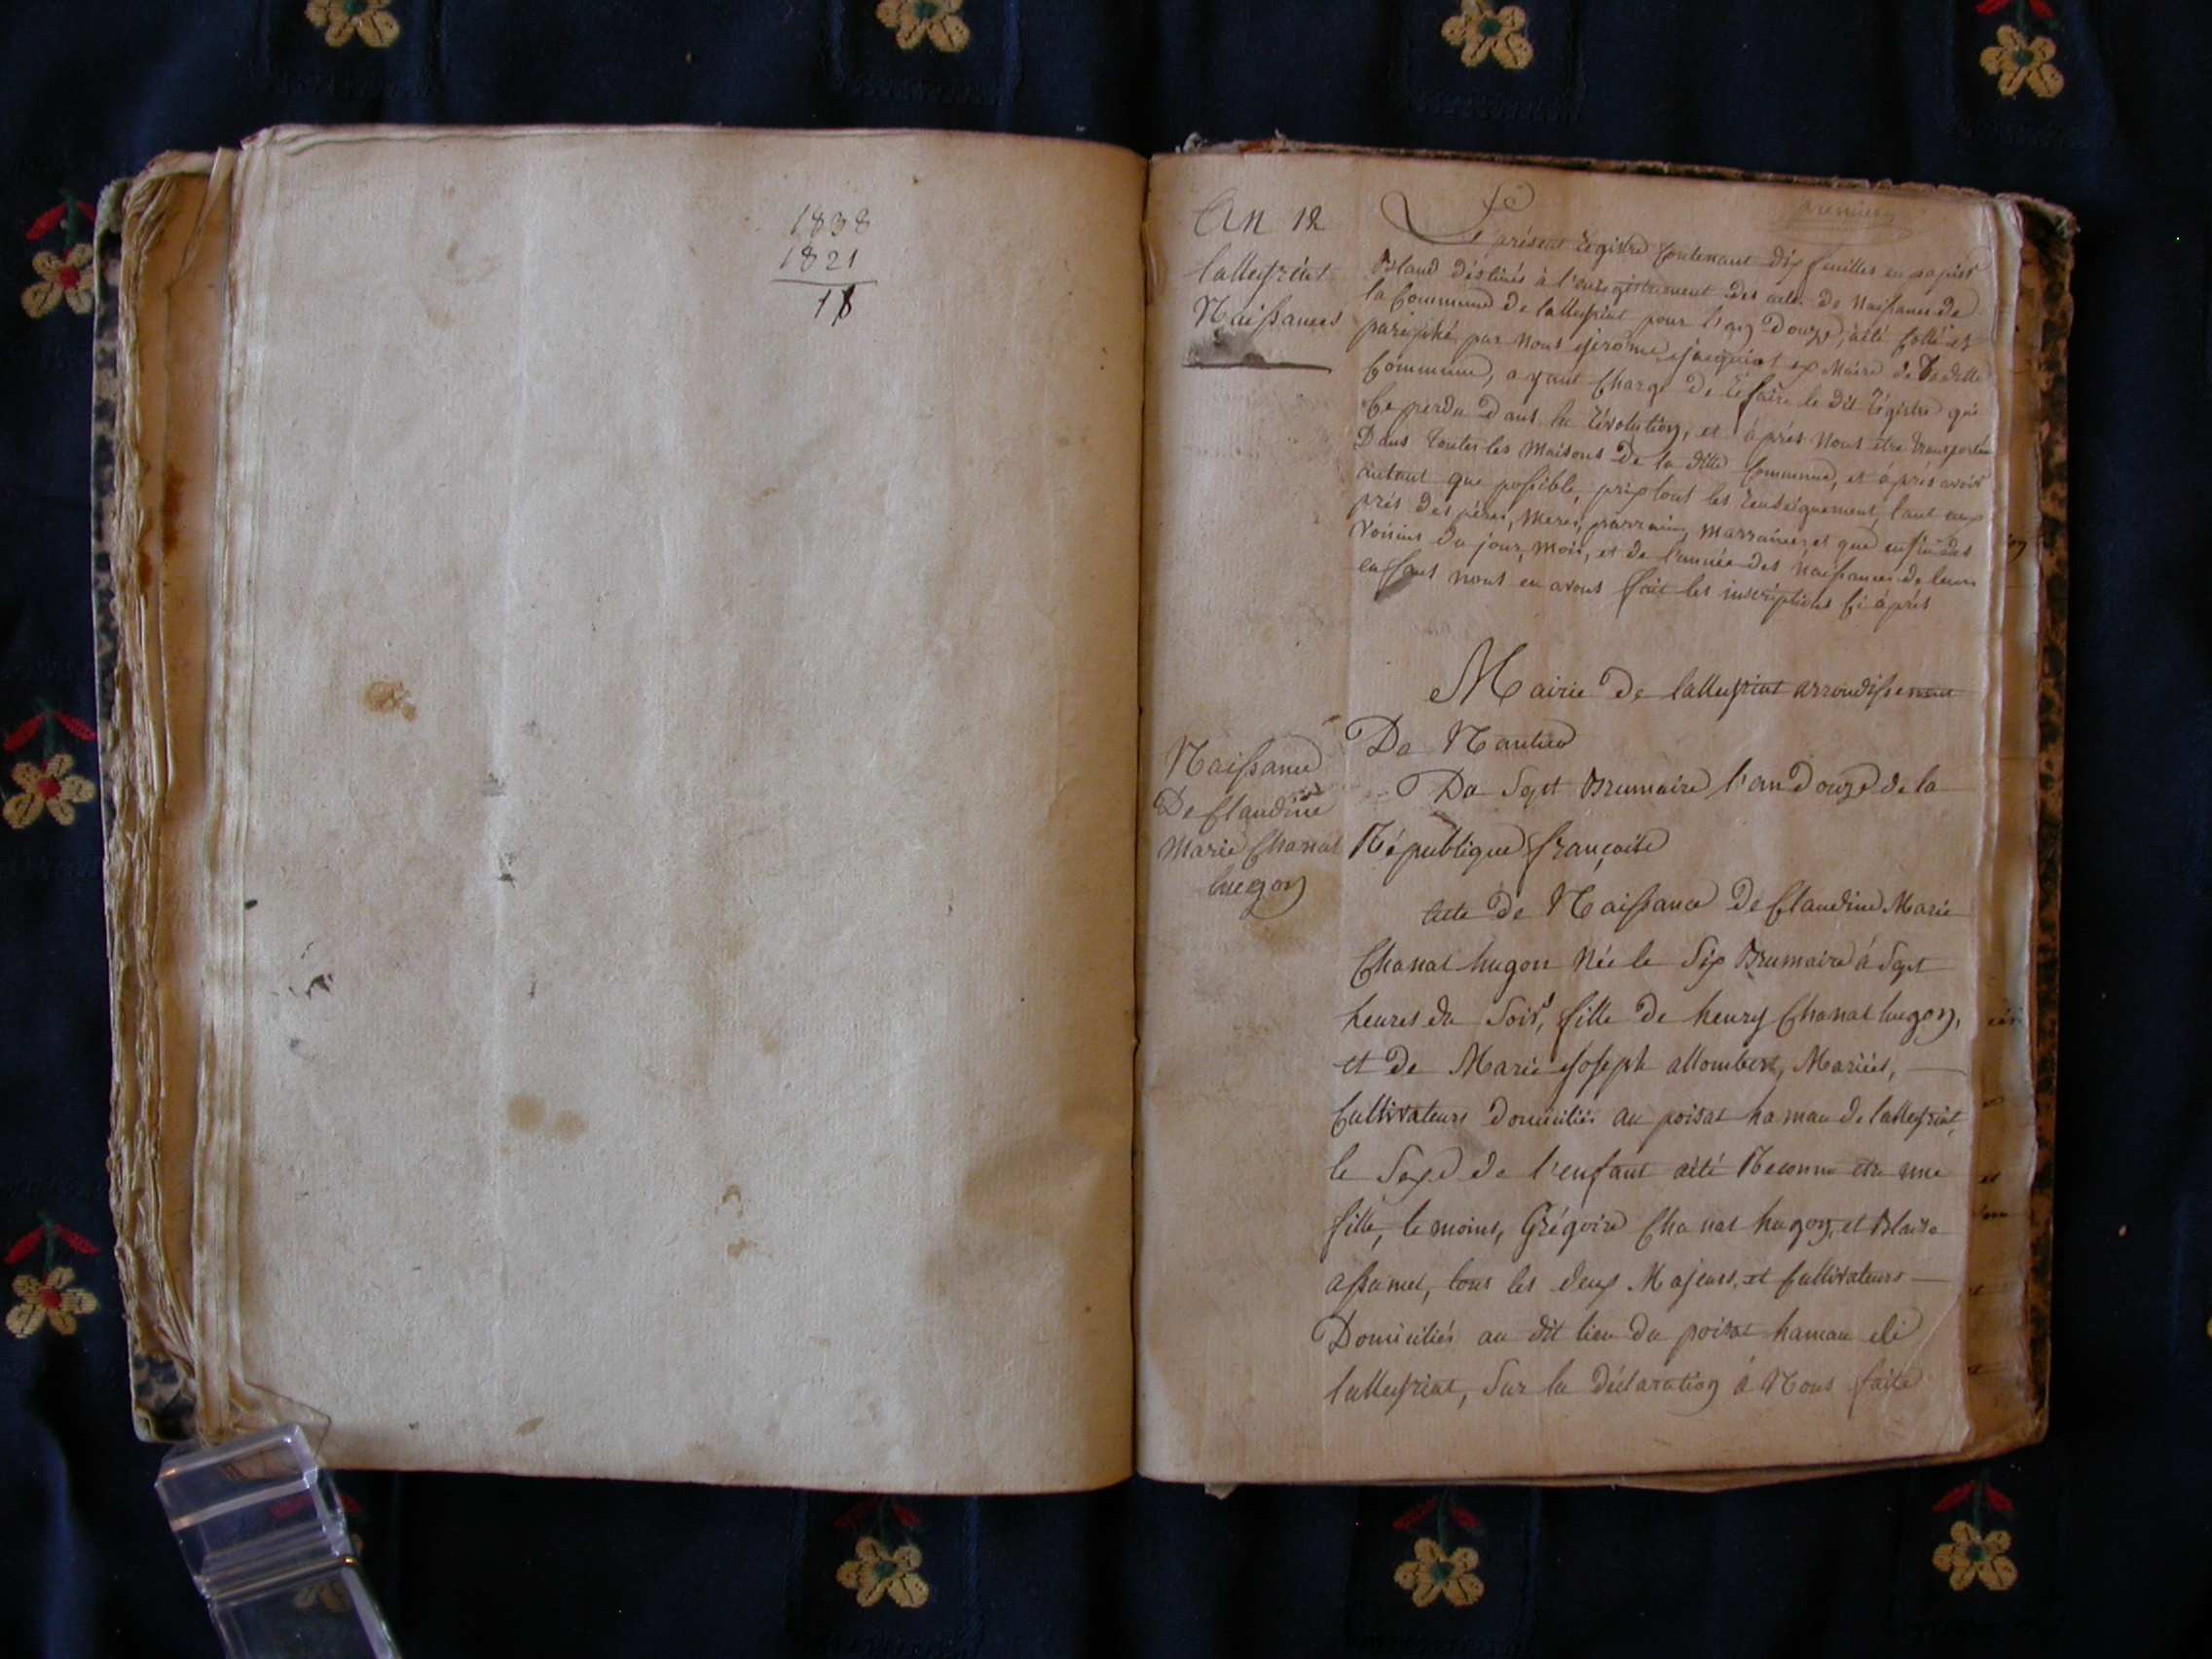 1838
1821
18
An 12
Lalleyriat
Naissances
premier
Le présent Registre Contenant dix feuilles en papier
Bland déstinés à l'enregistrement des actes de Naissance de
la Commune de Lalleyriat pour l'an Douze, aété Cotté et
par nous jerome ex Maire de la ditte
Commune, ayant Chargé de Réfaire le dit Régistre qui
Ce perdu Dans la Révolution, et après Nous être transportés
Dans toutes les Maisons De la ditte Commune, et après avoir
autant que possible, prix tout les Renseignement, tant aux
près des pères, meres, parrains, marraines, et que enfin des
Voisins du jour, mois, et de l'année des naissances de leurs
enfans nous en avons fait les inscriptions Ci après
Mairie De Lalleyriat arrondissement
De Nantua
Du Sept Brumaire l'an Douze de la
République françoise
Naissance
De Claudine
Marie Chanal
hugon
acte De Naissance De Claudine Marie
Chanal hugon Née le Six Brumaire á Sept
heures du Soir, fille De henry Chanal hugon,
et De Marie joseph allombert, Mariés,
Cultivateurs Domiciliés au poizat hamau de lalleyriat,
le Sexe de l'enfant aété Reconnu etre une
fille, temoins, Grégoire Chanal hugon, et Blaise
assamel, tous les deux Majeurs, et Cultivateurs
Domiciliés au dit lieu du poizat hamau de
lalleyriat, Sur la Déclaration á Nous faite